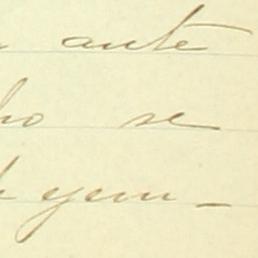 ante
ho se
ejem-